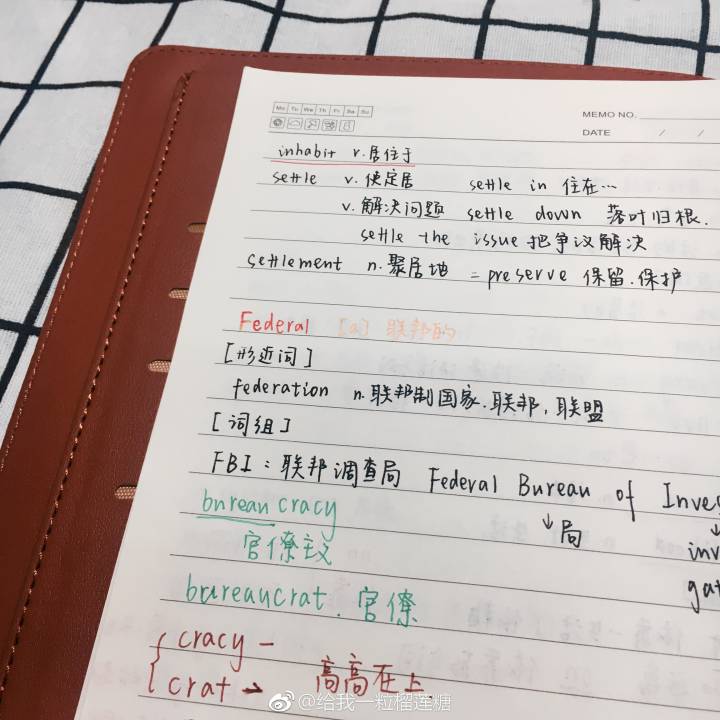 Mo Tu We Th Fr Sa Su
MEMO NO.
DATE / /
inhabit v.居住于
settle v.使定居 settle in 住在…
v.解决问题 settle down 落叶归根.
settle the issue 把争议解决
settlement n.聚居地 = preserve 保留.保护
Federal [a] 联邦的
[形近词]
federation n.联邦制国家.联邦,联盟
[词组]
FBI:联邦调查局 Federal Bureau of Inves
↓局 ↓
bureaucracy inv
官僚主义 gat
bureaucrat.官僚
{ cracy -
crat → 高高在上
@给我一粒榴莲糖